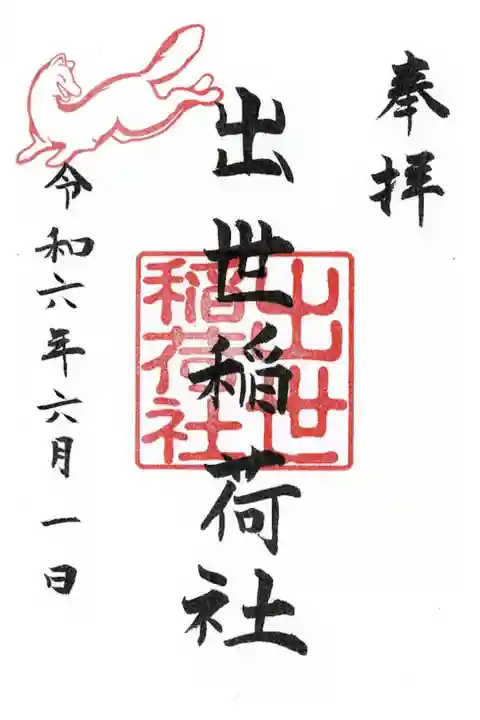 奉拝
出世稲荷社
出世稲荷社
令和六年六月一日